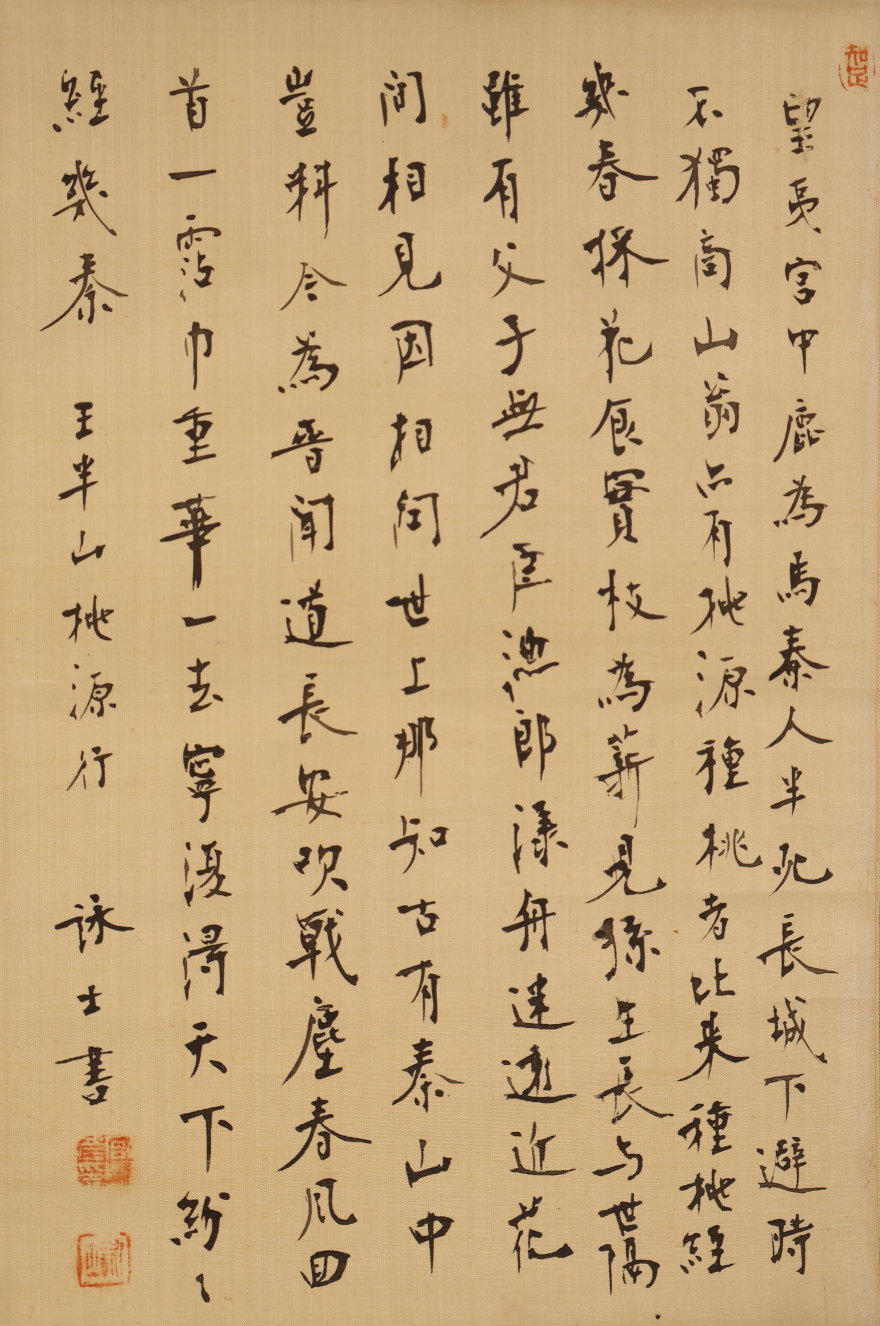 知足
望夷宮中鹿為馬秦人半死長城下避時
不獨商山翁亦有桃源種桃者比来種桃經
幾春採花食實枝為薪兒孫生長与世隔
雖有父子無君臣漁郎漾舟迷遠近花
間相見因相問世上那知古有秦山中
豈料今為晋聞道長安吹戰塵春風回
首一霑巾重華一去寧復得天下紛〻
經幾秦 王半山桃源行 詠士書